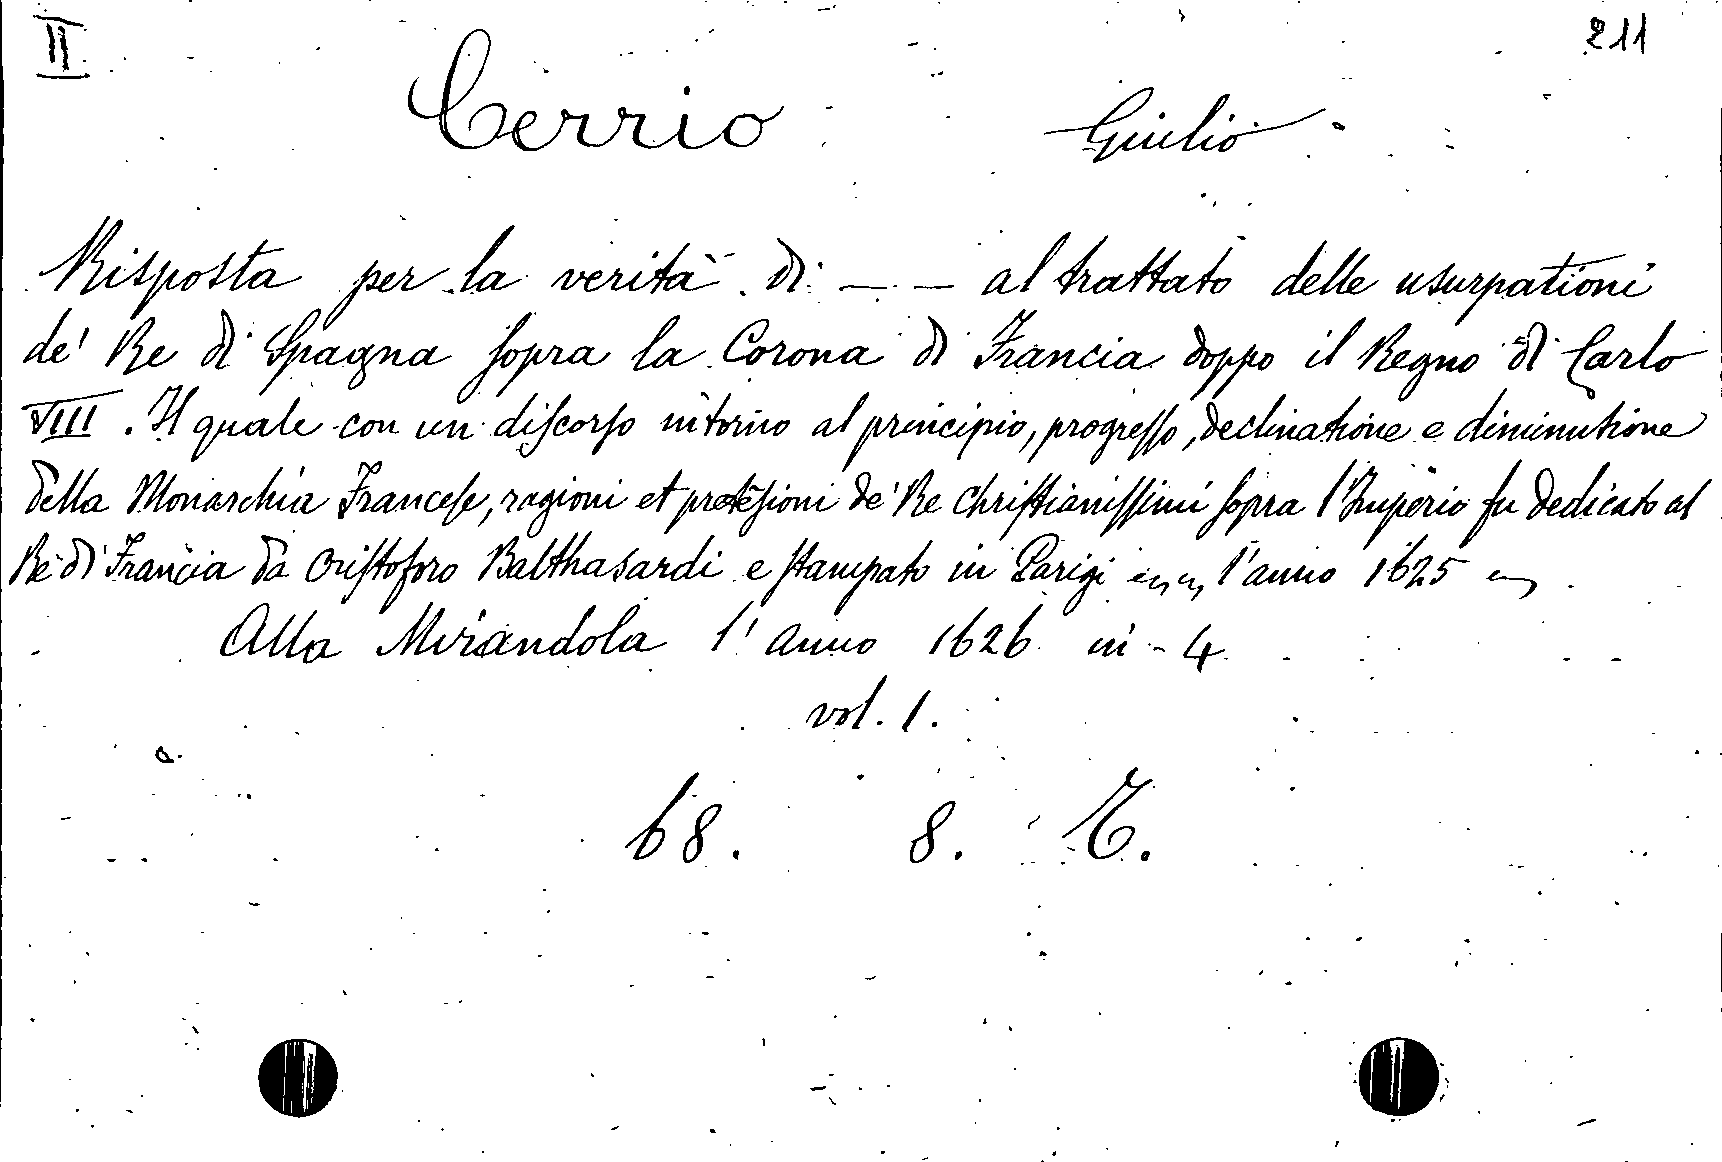 II 211
Cerrio Giulio
Risposta per la verità di — — al trattato delle usurpationi
de' Re di Spagna sopra la Corona di Francia doppo il Regno di Carlo
VIII. Il quale con un discorso intorno al principio, progresso, declinatione e diminutione
della Monarchia Francese, ragioni et pretesioni de' Re Christianissimi sopra l'Imperio fu dedicato al
Re di Francia da Cristoforo Balthasardi e stampato in Parigi l'anno 1625
Alla Mirandola l'anno 1626 in-4
vol. 1.
68. 8. T.